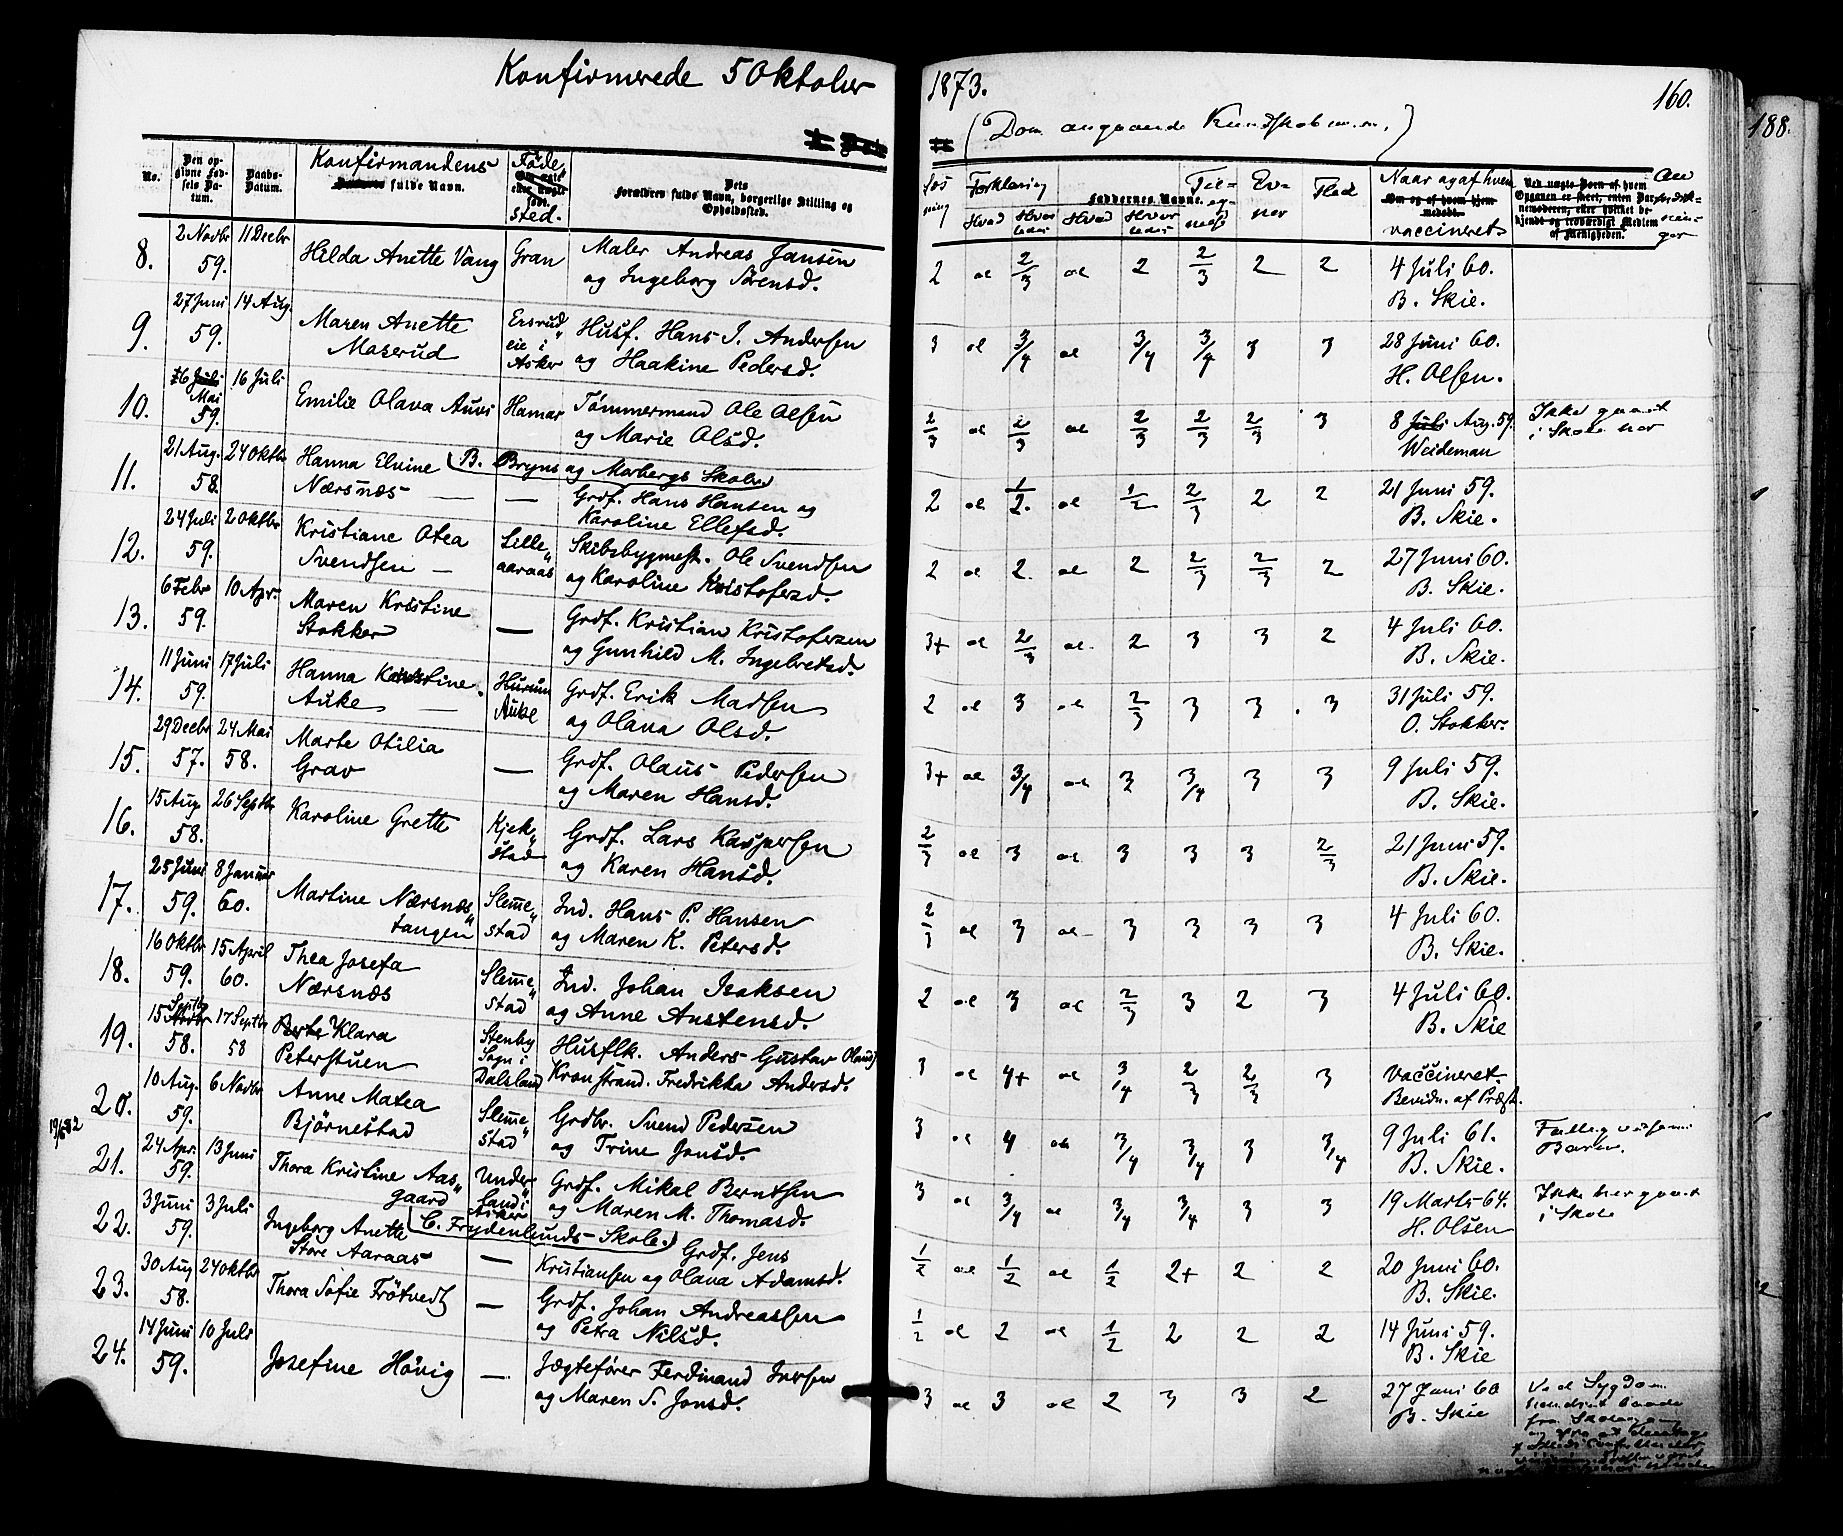 Konfirmerede 5 Oktober 1873.
160.
188.
(Dom angaaende Kundskab m.m.)
No.
Den opgivne Fødsels Datum.
Daabs-Datum.
Konfirmandens fulde Navn.
Fødested.
Dets Forældres fulde Navn, borgerlige Stilling og Opholdssted.
Forklaring
Hvad Hvorledes Hvad Hvorledes
Faddernes Navne.
Evner
Flid
Naar og af hvem vaccineret
Anmærkninger
8. 2 Novbr 59. 11 Decbr Hilda Anette Vang Gran Maler Andreas Jansen
og Ingeborg Sørensd. 2 al 2/3 al 2 2/3 2 2 4 Juli 60.
B. Skie.
9. 27 Juni 59. 14 Aug. Maren Anette Maserud Ersrud eie i Asker Husf. Hans J. Andersen
og Haakine Pedersd. 3 al 3/4 al 3/4 3/4 3 3 28 Juni 60.
H. Olsen.
10. 16 Mai 59. 16 Juli Emilie Olava Auvi Hamar Tømmermand Ole Olsen
og Marie Olsd. 2/3 al 2/3 al 2/3 2/3 2/3 3 8 Aug. 59.
Weideman
Ikke gaaet
i Skole her
(B. Bryns og Morbergs Skole)
11. 21 Aug. 58. 24 Oktbr Hanna Elvine
Nærsnæs — — Grdf. Hans Hansen og
Karoline Ellefsd. 2 al 1/2. al 1/2 2/3 2 2 21 Juni 59.
B. Skie.
12. 24 Juli 59. 2 Oktbr Kristiane Otea
Svendsen — Lilleaaraas Skibsbygmestr. Ole Svendsen
og Karoline Kristofersd. 2 al 2 al 2 2/3 2/3 2 27 Juni 60.
B. Skie.
13. 6 Febr 59. 10 Apr. Maren Kristine
Stokker — Grdf. Kristian Kristofersen
og Gunhild M. Ingebretsd. 3+ al 2/3 al 2 3 3 2 4 Juli 60.
B. Skie.
14. 11 Juni 59. 17 Juli Hanna Kristine
Auke — Hurum Auke Grdf. Erik Madsen
og Olava Olsd. 2 al 3 al 2/3 3 3 3 31 Juli 59.
O. Stokker.
15. 29 Decbr 57. 24 Mai 58. Marte Otilia
Grav — Grdf. Olaus Pedersen
og Maren Hansd. 3+ al 3/4 al 3 3/4 3 3 9 Juli 59.
B. Skie.
16. 15 Aug. 58. 26 Septbr Karoline Grette Kjekstad Grdf. Lars Kaspersen
og Karen Hansd. 2/3 al 3 al 3 3 3 2/3 21 Juni 59.
B. Skie.
17. 25 Juni 59. 8 Januar 60. Martine Nærsnæstangen Slemmestad Ind. Hans P. Hansen
og Maren K. Petersd. 2/3 al 3 al 3 3 3 3 4 Juli 60.
B. Skie.
18. 16 Oktbr 59. 15 April 60. Thea Josefa
Nærsnæs Slemmestad Ind. Johan Isaksen
og Anne Austensd. 2 al 3 al 2/3 3 2 3 4 Juli 60.
B. Skie
19. 15 Septbr 58. 17 Septbr 58 Berte Klara
Peterstuen Stenby Sogn i Dalsland Husflk. Anders Gustav Olauss
Kronstrand. Fredrikka Andersd. 3 al 4+ al 3/4 2/3 2/3 3 Vaccineret.
Bevidn. af Præst.
20. 10 Aug. 59. 6 Novbr Anne Matea
Bjørnestad Slemmestad Grdbr. Svend Pedersen
og Trine Jonsd. 3 al 4 al 3/4 3/4 3 3/4 9 Juli 61.
B. Skie.
21. 24 Apr. 59. 13 Juni Thora Kristine Aasgaard Underland i Asker Grdf. Mikal Berntsen
og Maren M. Thomasd. 3 al 3/4 al 3/4 3/4 3 3 19 Marts 64.
H. Olsen
Ikke her gaaet
i Skole
(C. Frydenlunds Skole.)
22. 3 Juni 59. 3 Juli Ingeborg Anette
Store Aaraas — Grdf. Jens
Kristiansen og Olava Adamsd. 1/2 al 1/2 al 1/2 2+ 2 2 20 Juni 60.
B. Skie.
23. 30 Aug 58. 24 Oktbr Thora Sofie Frøtvedt — Grdf. Johan Andreassen
og Petra Nilsd. 1/2 al 2 al 1/2 2 2 2 14 Juni 59.
B. Skie
24. 14 Juni 59. 10 Juli Josefine Høvig — Jægtefører Ferdinand Iversen
og Maren S. Jonsd. 3 al 3 al 2 3 3 2 27 Juni 60
B. Skie
Ved Sygdom